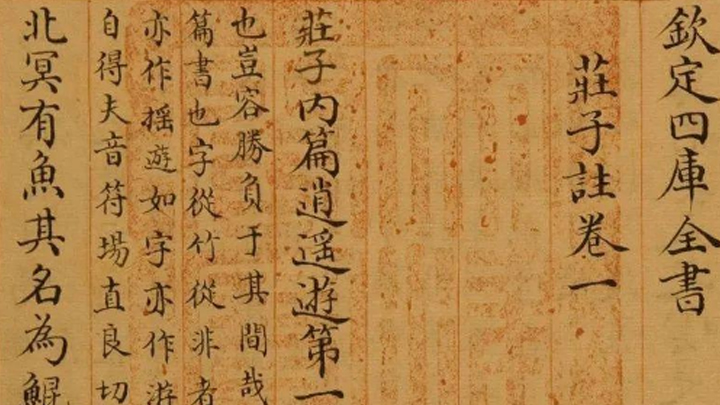 欽定四庫全書
莊子註卷一
莊子内篇逍遥遊第一
也豈容勝負于其間哉
篇書也字從竹從非者
亦作揺遊如字亦作游
自得夫音符場直良切
北冥有魚其名為鯤